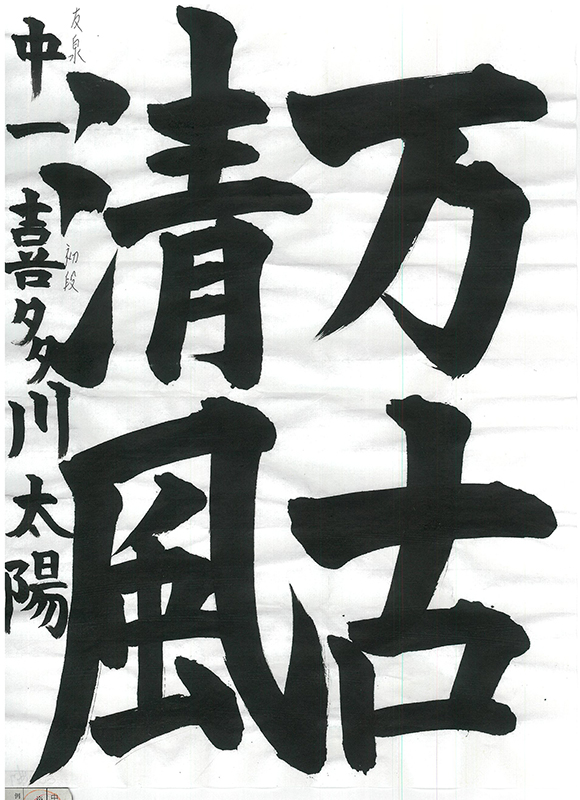 万古
清風
中一 喜多川太陽
友泉
初段